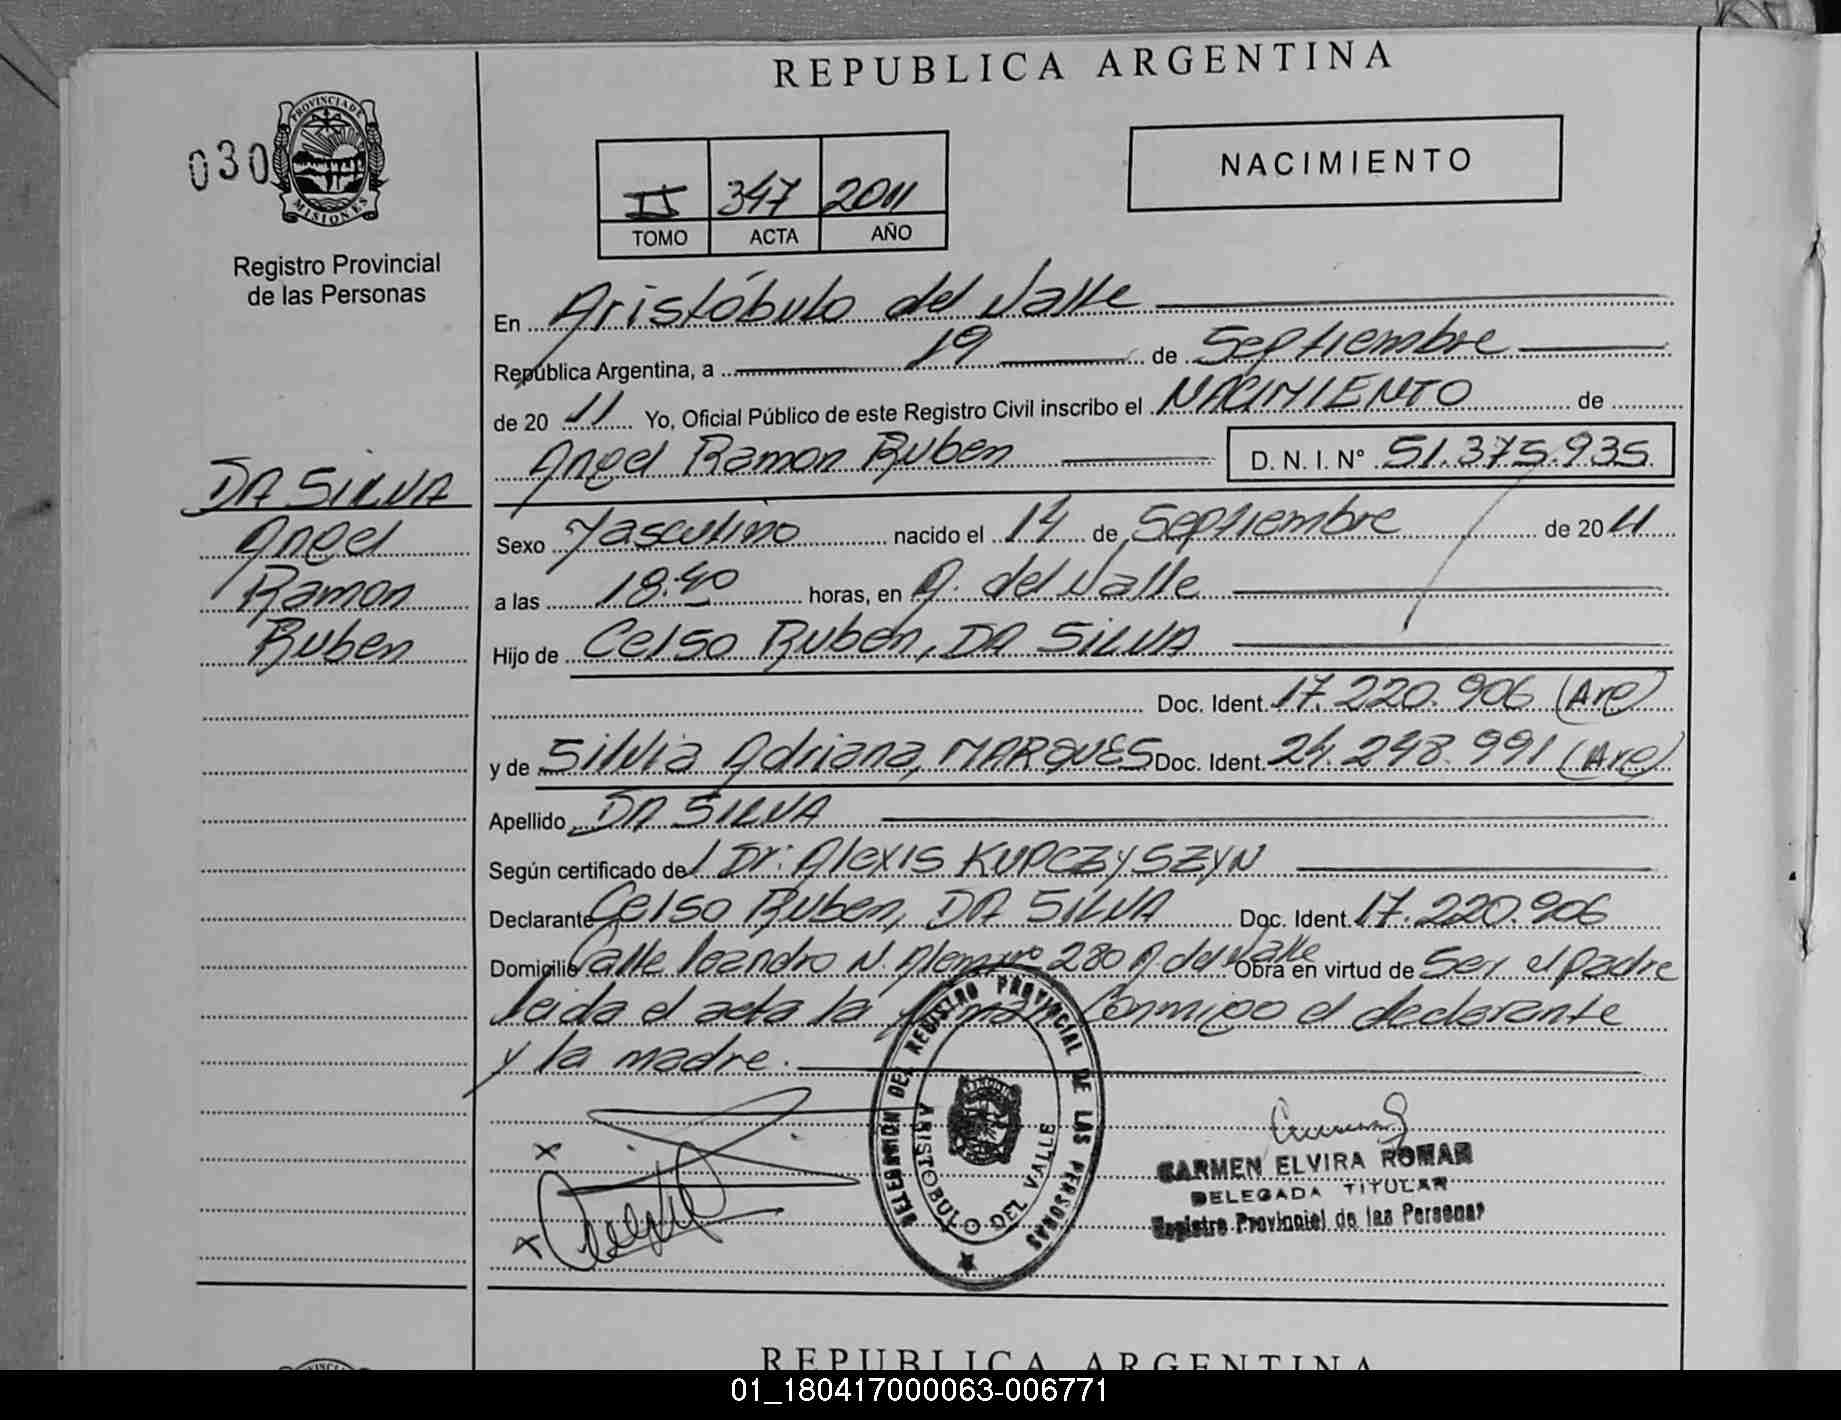 REPUBLICA ARGENTINA
030
PROVINCIA DE
MISIONES
Registro Provincial
de las Personas
NACIMIENTO
II 347 2011
TOMO ACTA AÑO
En Aristóbulo del Valle
República Argentina, a 19 de Septiembre
de 20 11 Yo, Oficial Público de este Registro Civil inscribo el NACIMIENTO de
Angel Ramon Ruben D. N. I. Nº 51.375.935
DA SILVA
Angel
Ramon
Ruben
Sexo Masculino nacido el 14 de Septiembre de 20 11
a las 18:40 horas, en A. del Valle
Hijo de Celso Ruben, DA SILVA
Doc. Ident. 17.220.906 (Arg)
y de Silvia Adriana, MARQUES Doc. Ident. 24.248.991 (Arg)
Apellido DA SILVA
Según certificado de l Dr: Alexis KUPCZYSZYN
Declarante Celso Ruben, DA SILVA Doc. Ident. 17.220.906
Domicilio Calle leandro N. Alem nro 280 A del Valle Obra en virtud de Ser el padre
leida el acta la firman Conmigo el declarante
y la madre.
DELEGACION DEL REGISTRO PROVINCIAL DE LAS PERSONAS
ARISTOBULO DEL VALLE
x
x
CARMEN ELVIRA ROMAN
DELEGADA TITULAR
Registro Provincial de las Personas
REPUBLICA ARGENTINA
01_180417000063-006771